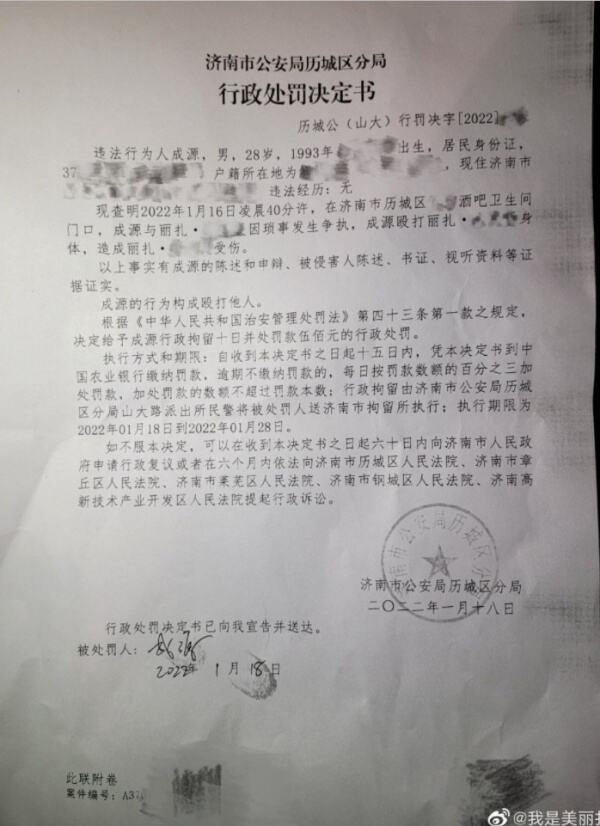 济南市公安局历城区分局
行政处罚决定书
历城公（山大）行罚决字[2022]
违法行为人成源，男，28岁，1993年 出生，居民身份证，
37 户籍所在地为 ，现住济南市
违法经历：无
现查明2022年1月16日凌晨40分许，在济南市历城区 酒吧卫生间
门口，成源与丽扎· 因琐事发生争执，成源殴打丽扎· 身
体，造成丽扎· 受伤。
以上事实有成源的陈述和申辩、被侵害人陈述、书证、视听资料等证
据证实。
成源的行为构成殴打他人。
根据《中华人民共和国治安管理处罚法》第四十三条第一款之规定，
决定给予成源行政拘留十日并处罚款伍佰元的行政处罚。
执行方式和期限：自收到本决定书之日起十五日内，凭本决定书到中
国农业银行缴纳罚款，逾期不缴纳罚款的，每日按罚款数额的百分之三加
处罚款，加处罚款的数额不超过罚款本数；行政拘留由济南市公安局历城
区分局山大路派出所民警将被处罚人送济南市拘留所执行；执行期限为
2022年01月18日到2022年01月28日。
如不服本决定，可以在收到本决定书之日起六十日内向济南市人民政
府申请行政复议或者在六个月内依法向济南市历城区人民法院、济南市章
丘区人民法院、济南市莱芜区人民法院、济南市钢城区人民法院、济南高
新技术产业开发区人民法院提起行政诉讼。
济南市公安局历城区分局
济南市公安局历城区分局
二〇二二年一月十八日
行政处罚决定书已向我宣告并送达。
被处罚人：成源
2022年 1月 18日
此联附卷
案件编号：A37
@我是美丽扎